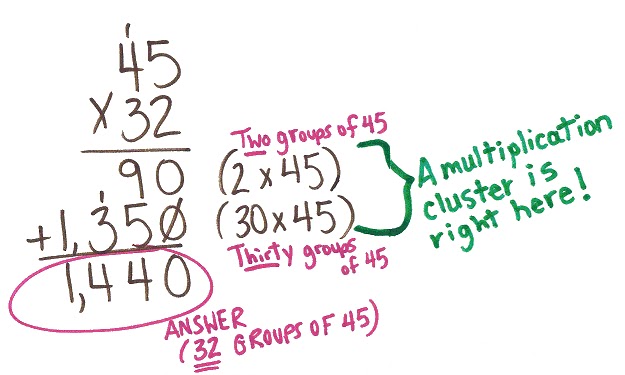 1
45
x 32
Two groups of 45
90 (2 x 45)
1
+1,350 (30 x 45)
Thirty groups
of 45
1,440
ANSWER
(32 GROUPS OF 45)
A multiplication
cluster is
right here!